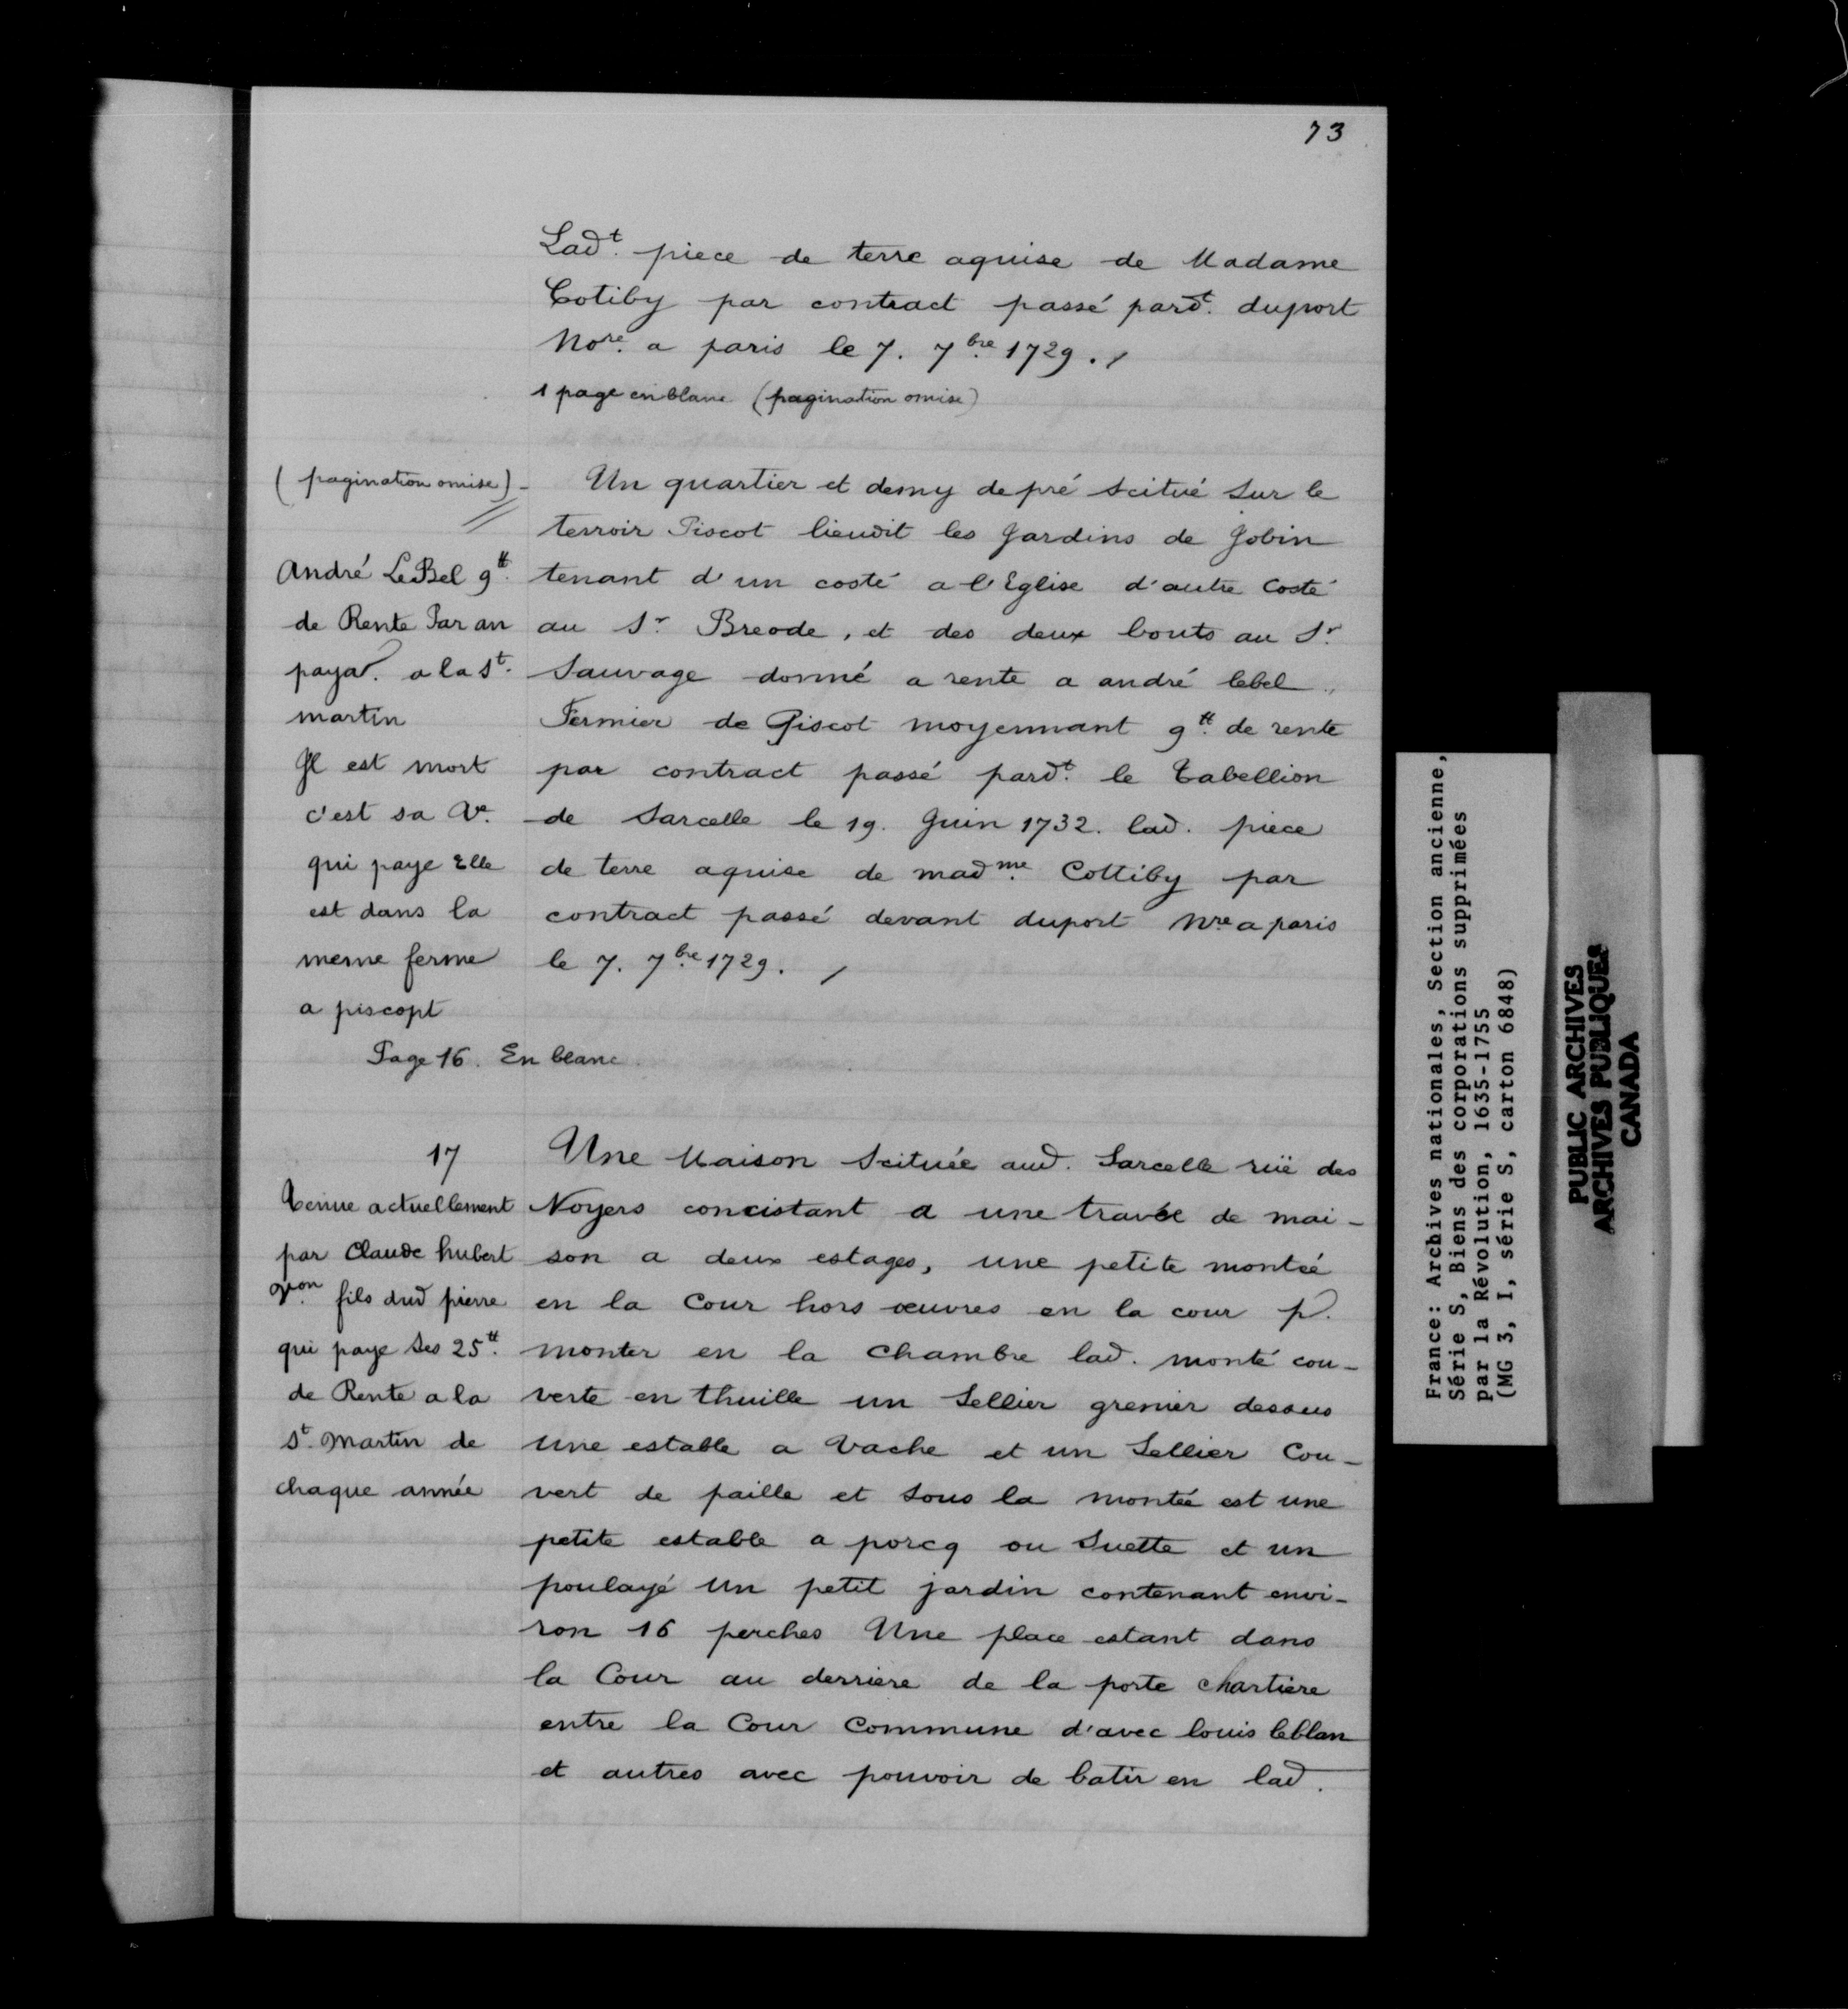 73
Lad.t piece de terre aquise de Madame
Cotiby par contract passé pard.t duport
No.re a paris le 7. 7.bre 1729. /
1 page en blanc (pagination omise)
(pagination omise) -
André LeBel 9.tt
de Rente Par an
payab. a la S.t
martin
Il est mort
c'est sa Ve.
qui paye Elle
est dans la
meme ferme
a piscopt
Un quartier et demy de pré scitué sur le
terroir Piscot lieudit les Jardins de Jobin
tenant d'un costé a l'Eglise d'autre costé
au Sr Breode, et des deux bouts au Sr.
Sauvage donné a rente a andré lebel
Fermier de Piscot moyennant 9.tt de rente
par contract passé pard.t le Tabellion
de Sarcelle le 19. Juin 1732. lad. piece
de terre aquise de mad.me Cottiby par
contract passé devant duport Nre a paris
le 7. 7.bre 1729. /
Page 16. En blanc.
17
Tenue actuellement
par Claude hubert
fils dud pierre
qui paye les 25.tt
de Rente a la
St. Martin de
chaque année
Une Maison Scituée aud. Sarcelle rüe des
Noyers concistant a une travée de mai-
son a deux estages, une petite montée
en la Cour hors œuvres en la cour p.
monter en la chambre lad. monté cou-
verte en thuille un Sellier grenier dessus
une estable a Vache et un Sellier Cou-
vert de paille et sous la montée est une
petite estable a porcq ou Suette et un
poulayé un petit jardin contenant envi-
ron 16 perches Une place estant dans
la Cour au derriere de la porte chartiere
entre la Cour Commune d'avec louis leblan
et autres avec pouvoir de batir en lad.
France: Archives nationales, Section ancienne,
Série S, Biens des corporations supprimées
par la Révolution, 1635-1755
(MG 3, I, série S, carton 6848)
PUBLIC ARCHIVES
ARCHIVES PUBLIQUES
CANADA